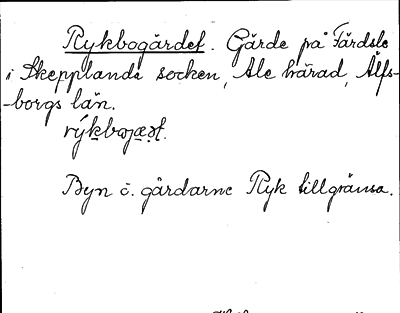 Rykbogärdet. Gärde på Färdsle
i Skepplanda socken, Ale härad, Älfs-
-borgs län.
Byn o. gårdarne Ryk tillgränsa.